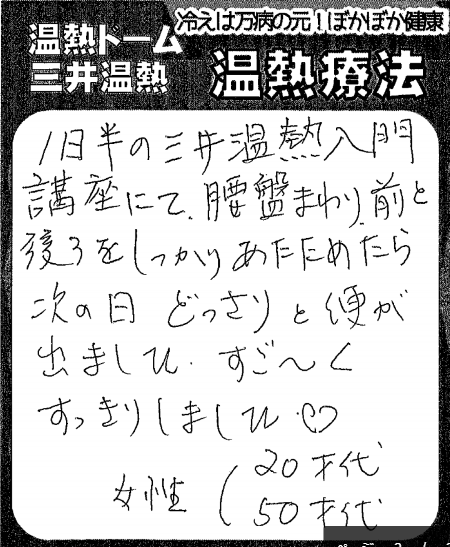 冷えは万病の元！ぽかぽか健康
温熱ドーム
三井温熱
温熱療法
1日半の三井温熱入門
講座にて、腰盤まわり、前と
後ろをしっかりあたためたら
次の日 どっさりと便が
出ました。すご〜く
すっきりしました。♡
女性（20才代
50才代